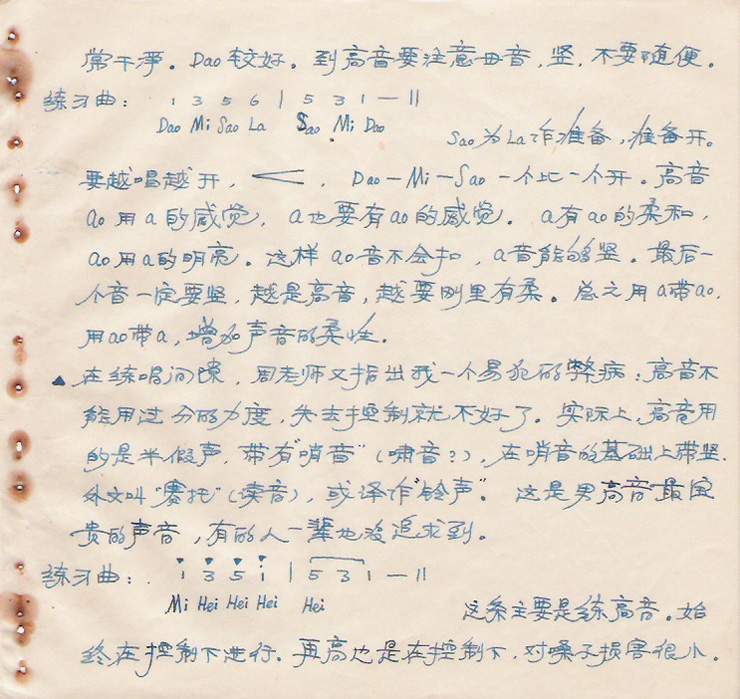 常干净。Dao较好。到高音要注意母音,竖,不要随便。
练习曲: 1 3 5 6 | 5 3 1 — ||
Dao Mi Sao La Sao Mi Dao
Sao为La作准备,准备开。
要越唱越开,<,Dao—Mi—Sao一个比一个开。高音
ao用a的感觉,a也要有ao的感觉。a有ao的柔和,
ao用a的明亮。这样ao音不会扣,a音能够竖。最后一
个音一定要竖,越是高音,越要刚里有柔。总之用a带ao,
用ao带a,增加声音的柔性。
▲在练唱间隙,周老师又指出我一个易犯的弊病:高音不
能用过分的力度,失去控制就不好了。实际上,高音用
的是半假声,带有“哨音”(啸音?),在哨音的基础上带竖.
外文叫“赛托”(读音),或译作“铃声”。这是男高音最宝
贵的声音,有的人一辈也没追求到。
练习曲: i 3 5 i | 5 3 1 — ||
Mi Hei Hei Hei Hei
这条主要是练高音。始
终在控制下进行。再高也是在控制下,对嗓子损害很小。